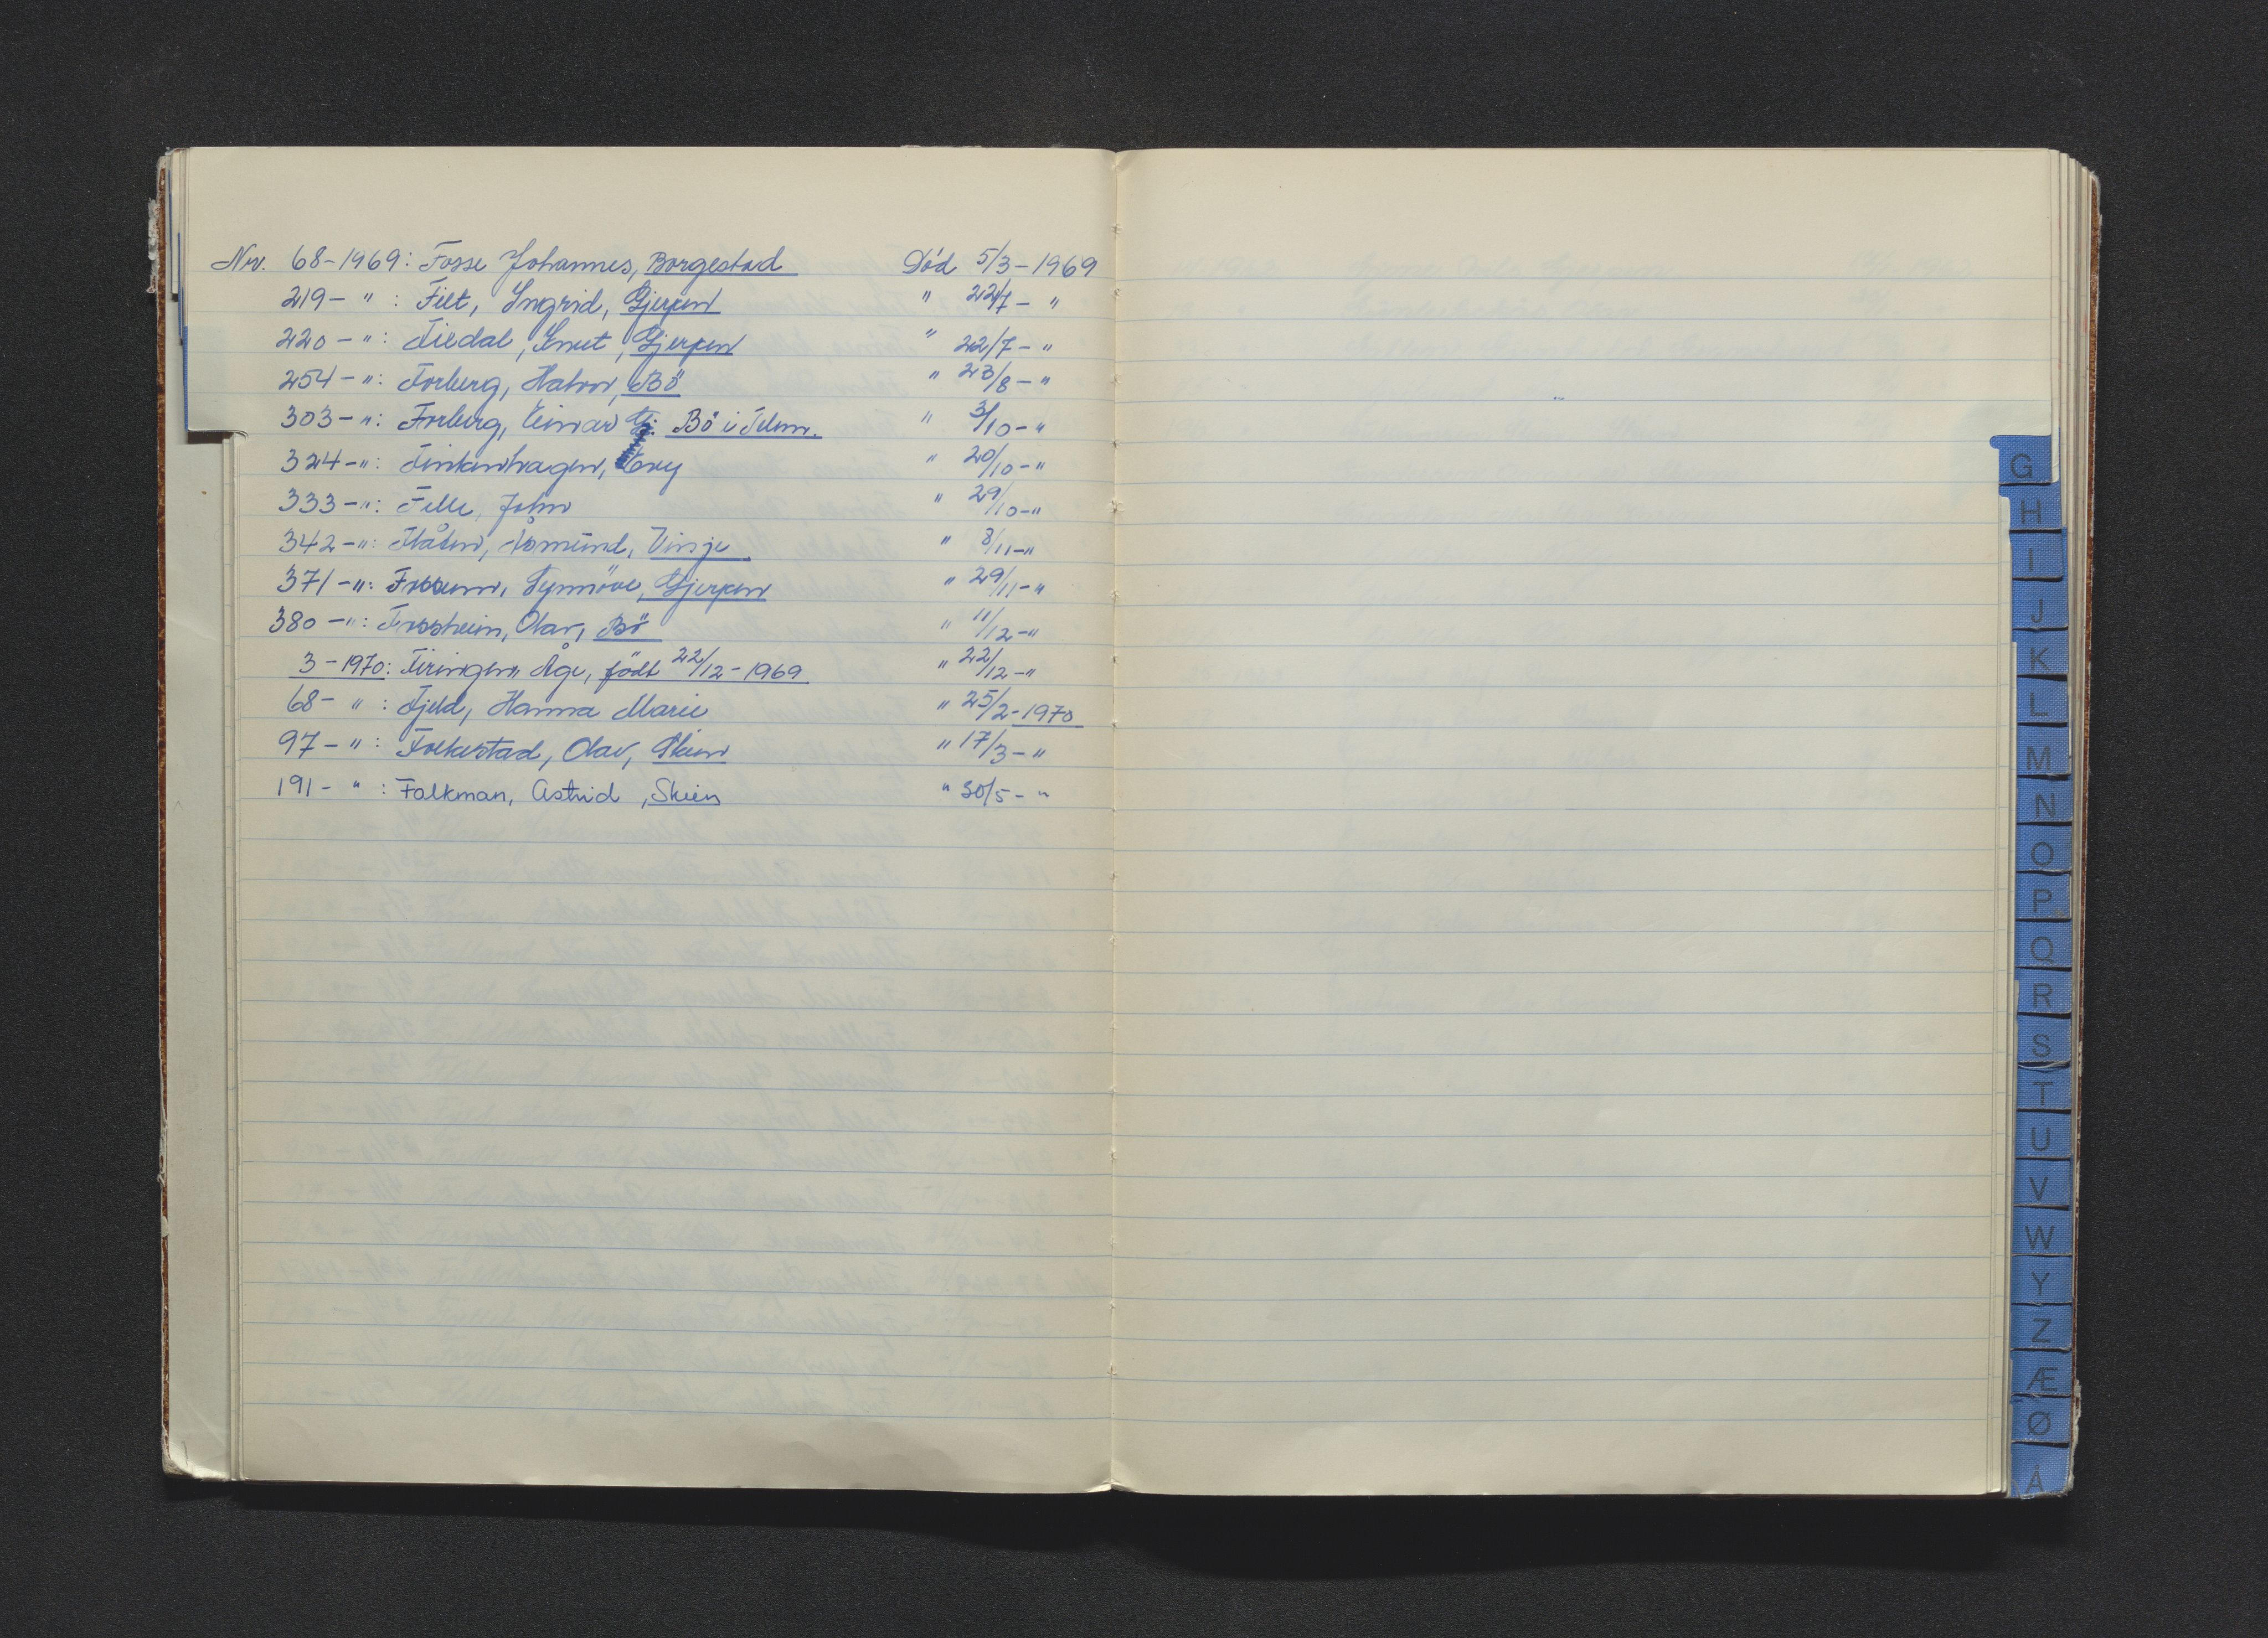 Nr. 68-1969: Fosse Johannes, Borgestad Död 5/3-1969
219- " : Filt, Ingrid, Gjerpen " 22/7- "
220- " : Fixdal, Knut, Gjerpen " 22/7- "
254- " : Forberg, Halvor, Bö " 23/8- "
303- " : Forberg, Einar Bö i Telem. " 3/10- "
324- " : Finkenhagen, " 20/10- "
333- " : Felle, John " 29/10- "
342- " : Flåten, Åsmund, Vinje " 8/11- "
371- " : Fossum, Synnöve, Gjerpen " 29/11- "
380- " : Frossheim, Olav, Bö " 11/12- "
3-1970: Firingen, Åge, födt 22/12-1969 " 22/12- "
68- " : Fjeld, Hanna Marie " 25/2-1970
97- " : Folkestad, Olav, Skien " 17/3- "
191- " : Falkman, Astrid, Skien " 30/5- "
G
H
I
J
K
L
M
N
O
P
Q
R
S
T
U
V
W
Y
Z
Æ
Ø
Å